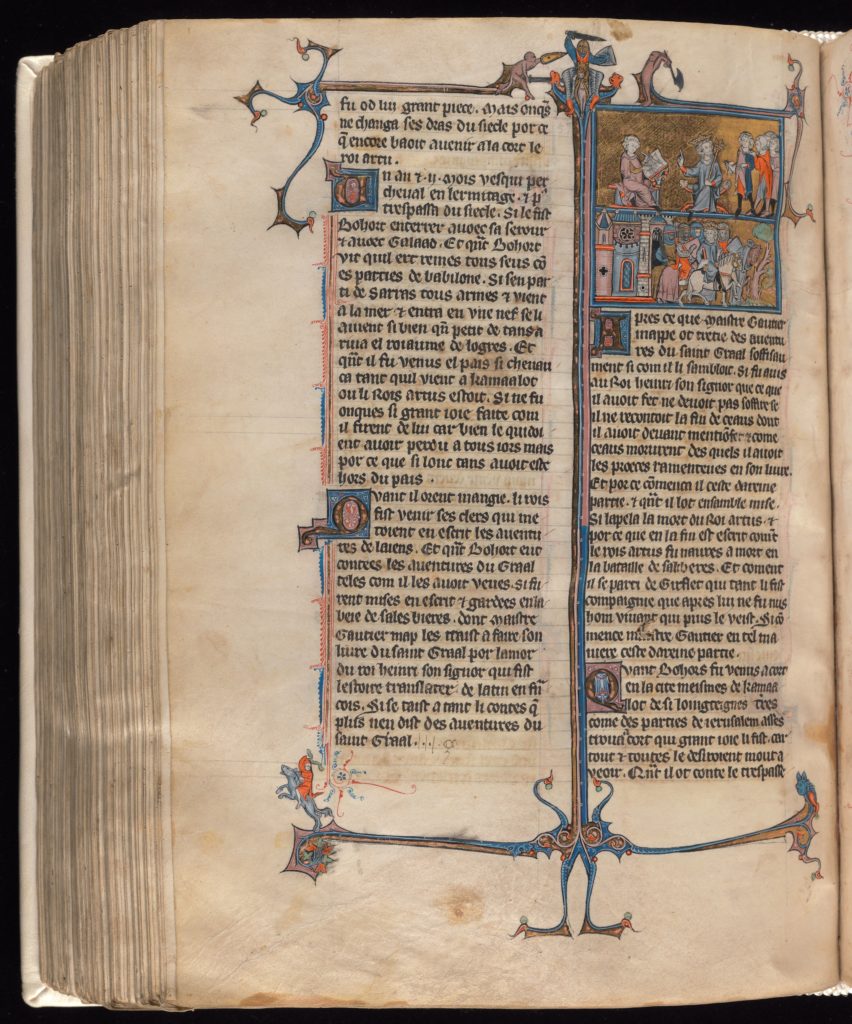 fu od lui grant piece. Mais onq̄s
ne changa ses dras du siecle por ce
q̄ encore baoit auenir a la cort le
roi artu.
Un an ⁊ .ij. mois vesqui per
cheual en lermitage. ⁊ p̄
trespassa du siecle. Si le fist
Bohort enterrer auoec sa serour
⁊ auoec Galaad. Et qn̄t Bohort
vit quil ert remes tous seus cō
es parties de babilone. Si sen par
ti de Sarras tous armes ⁊ vient
a la mer ⁊ entra en vne nef se li
auient si bien qn̄ petit de tans a
riua el roiaume de logres. Et
qn̄t il fu venus el pais si cheuau
ca tant quil vient a kamaalot
ou li Rois artus estoit. Si ne fu
onques si grant ioie faite com
il firent de lui car bien le quidoi
ent auoir perdu a tous iors mais
por ce que si lonc tans auoit este
hors du pais.
Quant il orent mangie. li rois
fist venir ses clers qui me
toient en escrit les auentu
res de laiens. Et qn̄t Bohort eut
contees les auentures du Graal
teles com il les auoit veues. si fu
rent mises en escrit ⁊ gardees en la
beie de sales bieres. dont maistre
Gautier map les traist a faire son
liure du saint Graal por lamor
du roi henri son signor qui fist
lestoire translater de latin en frā
cois. Si se taist a tant li contes q̄
plus nen dist des auentures du
saint Graal...
Apres ce que Maistre Gautier
mappe ot tretie des auentu
res du saint Graal soffisau
ment si com il li sambloit. Si fu auis
au Roi henri son signor que ce que
il auoit fet ne deuoit pas soffire se
il ne recontoit la fin de ceaus dont
il auoit deuant mention fet ⁊ come
ceaus morurent des quels il auoit
les proeces ramenteues en son liure.
Et por ce cōmenca il ceste dareine
partie. ⁊ qn̄t il lot ensamble mise.
Si lapela la mort du Roi artus. ⁊
por ce que en la fin est escrit comt̄
le rois artus fu naures a mort en
la bataille de salēberes. Et coment
il se parti de Girflet qui tant li fist
compaignie que apres lui ne fu nus
hom viuant qui puis le veist. Si cō
mence maistre Gautier en tel ma
niere ceste dareine partie.
Quant Bohors fu venus a cort
en la cite meismes de kamaa
lot de si loingteignes terres
come des parties de ierusalem asses
troua a cort qui grant ioie li fist. car
tout ⁊ toutes le desiroient mout a
veoir. Qn̄t il ot conte le trespasse